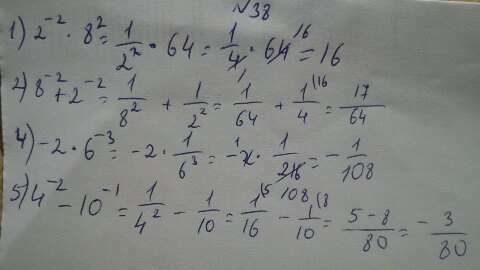 №38
1) 2⁻² · 8² = 1/2² · 64 = 1/4 · 64 ¹⁶ = 16
2) 8⁻² + 2⁻² = 1/8² + 1/2² = 1/64 + 1/4 ⁽¹⁶ = 17/64
4) -2 · 6⁻³ = -2 · 1/6³ = -2 ¹ · 1/216 108 = -1/108
5) 4⁻² - 10⁻¹ = 1/4² - 1/10 = 1/16 ⁽⁵ - 1/10 ⁽⁸ = 5-8/80 = -3/80